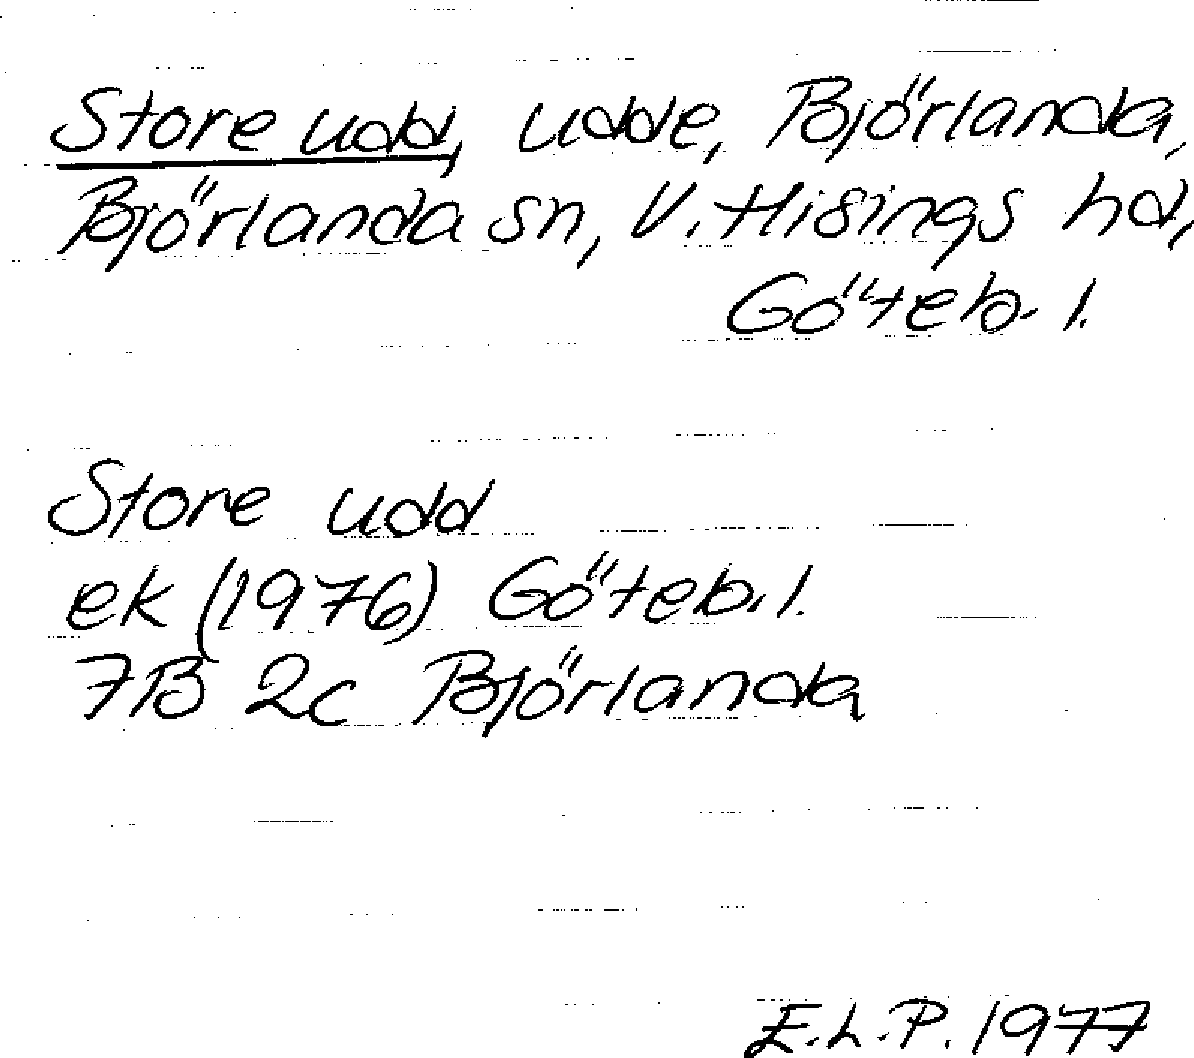 Store udd, udde, Björlanda,
Björlanda sn, V. Hisings hd,
Göteb. l.
Store udd
ek (1976) Göteb. l.
7B 2c Björlanda
E.L.P. 1977